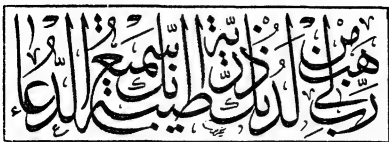 رب هب لي من لدنك ذرية طيبة إنك سميع الدعاء